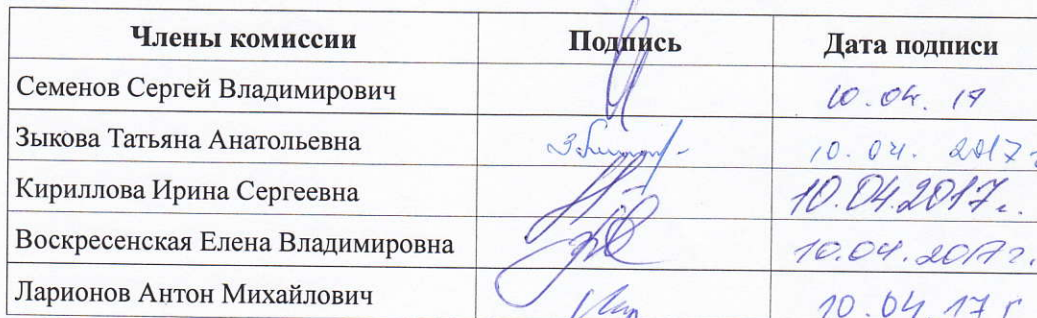 Члены комиссии Подпись Дата подписи
Семенов Сергей Владимирович 10.04.17
Зыкова Татьяна Анатольевна 10.04.2017г
Кириллова Ирина Сергеевна 10.04.2017г.
Воскресенская Елена Владимировна 10.04.2017г.
Ларионов Антон Михайлович 10.04.17 г